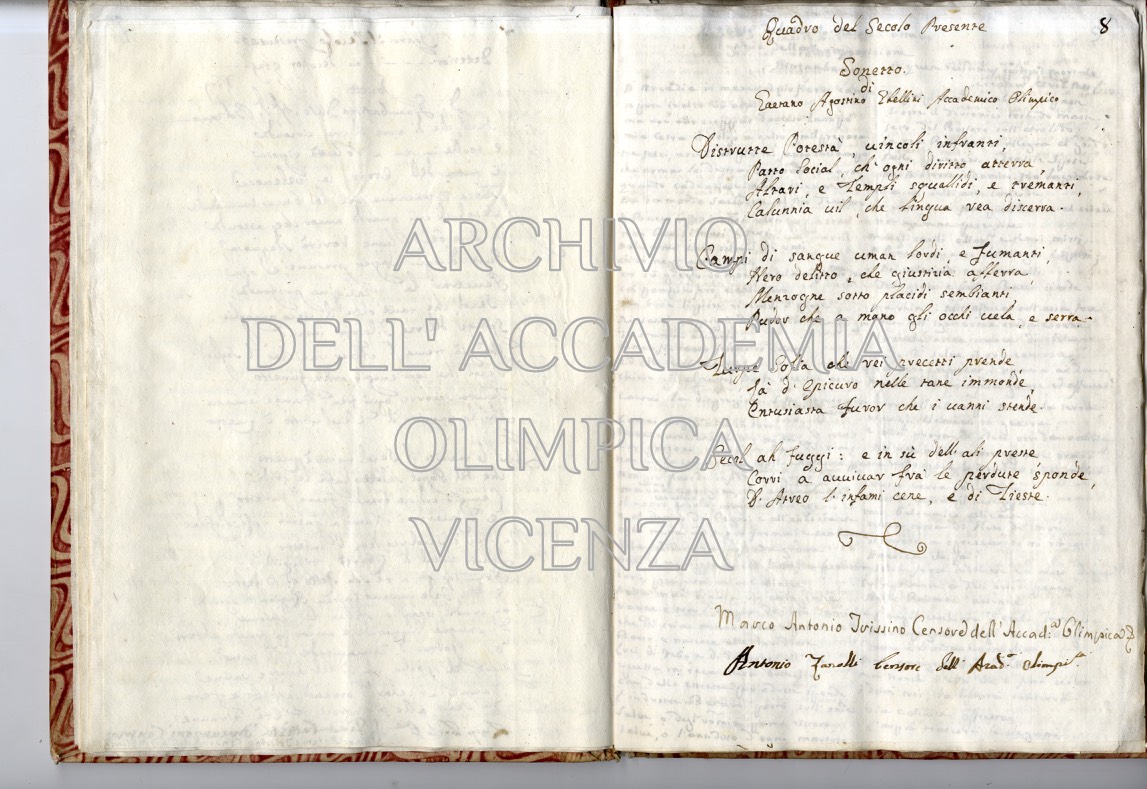 Quadro del Secolo Presente
8
Sonetto.
di
Gaetano Agostino Thellini Accademico Olimpico
Distrutte Potestà, vincoli infranti,
Patto Social, ch' ogni diritto atterra,
Altari, e Templi squallidi, e tremanti,
Calunnia vil, che lingua rea disserra.
Campi di sangue uman lordi, e fumanti,
Nero delitto, che giustizia afferra,
Menzogne sotto placidi sembianti,
Pudor che a mano gli occhi vela, e serra.
Turpe che rei precetti prende,
Là d' Epicuro nelle tane immonde,
Entusiasta furor che i vanni stende.
Secol ah fuggi: e in sù dell' ali preste
Corri a avvivar frai le perdute sponde,
D' Atreo l' infami cene, e di Tieste.
Marco Antonio Trissino Censore dell' Accad.a Olimpica
Antonio Censore dell' Acad.a Olimpi.a
ARCHIVIO
DELL' ACCADEMIA
OLIMPICA
VICENZA